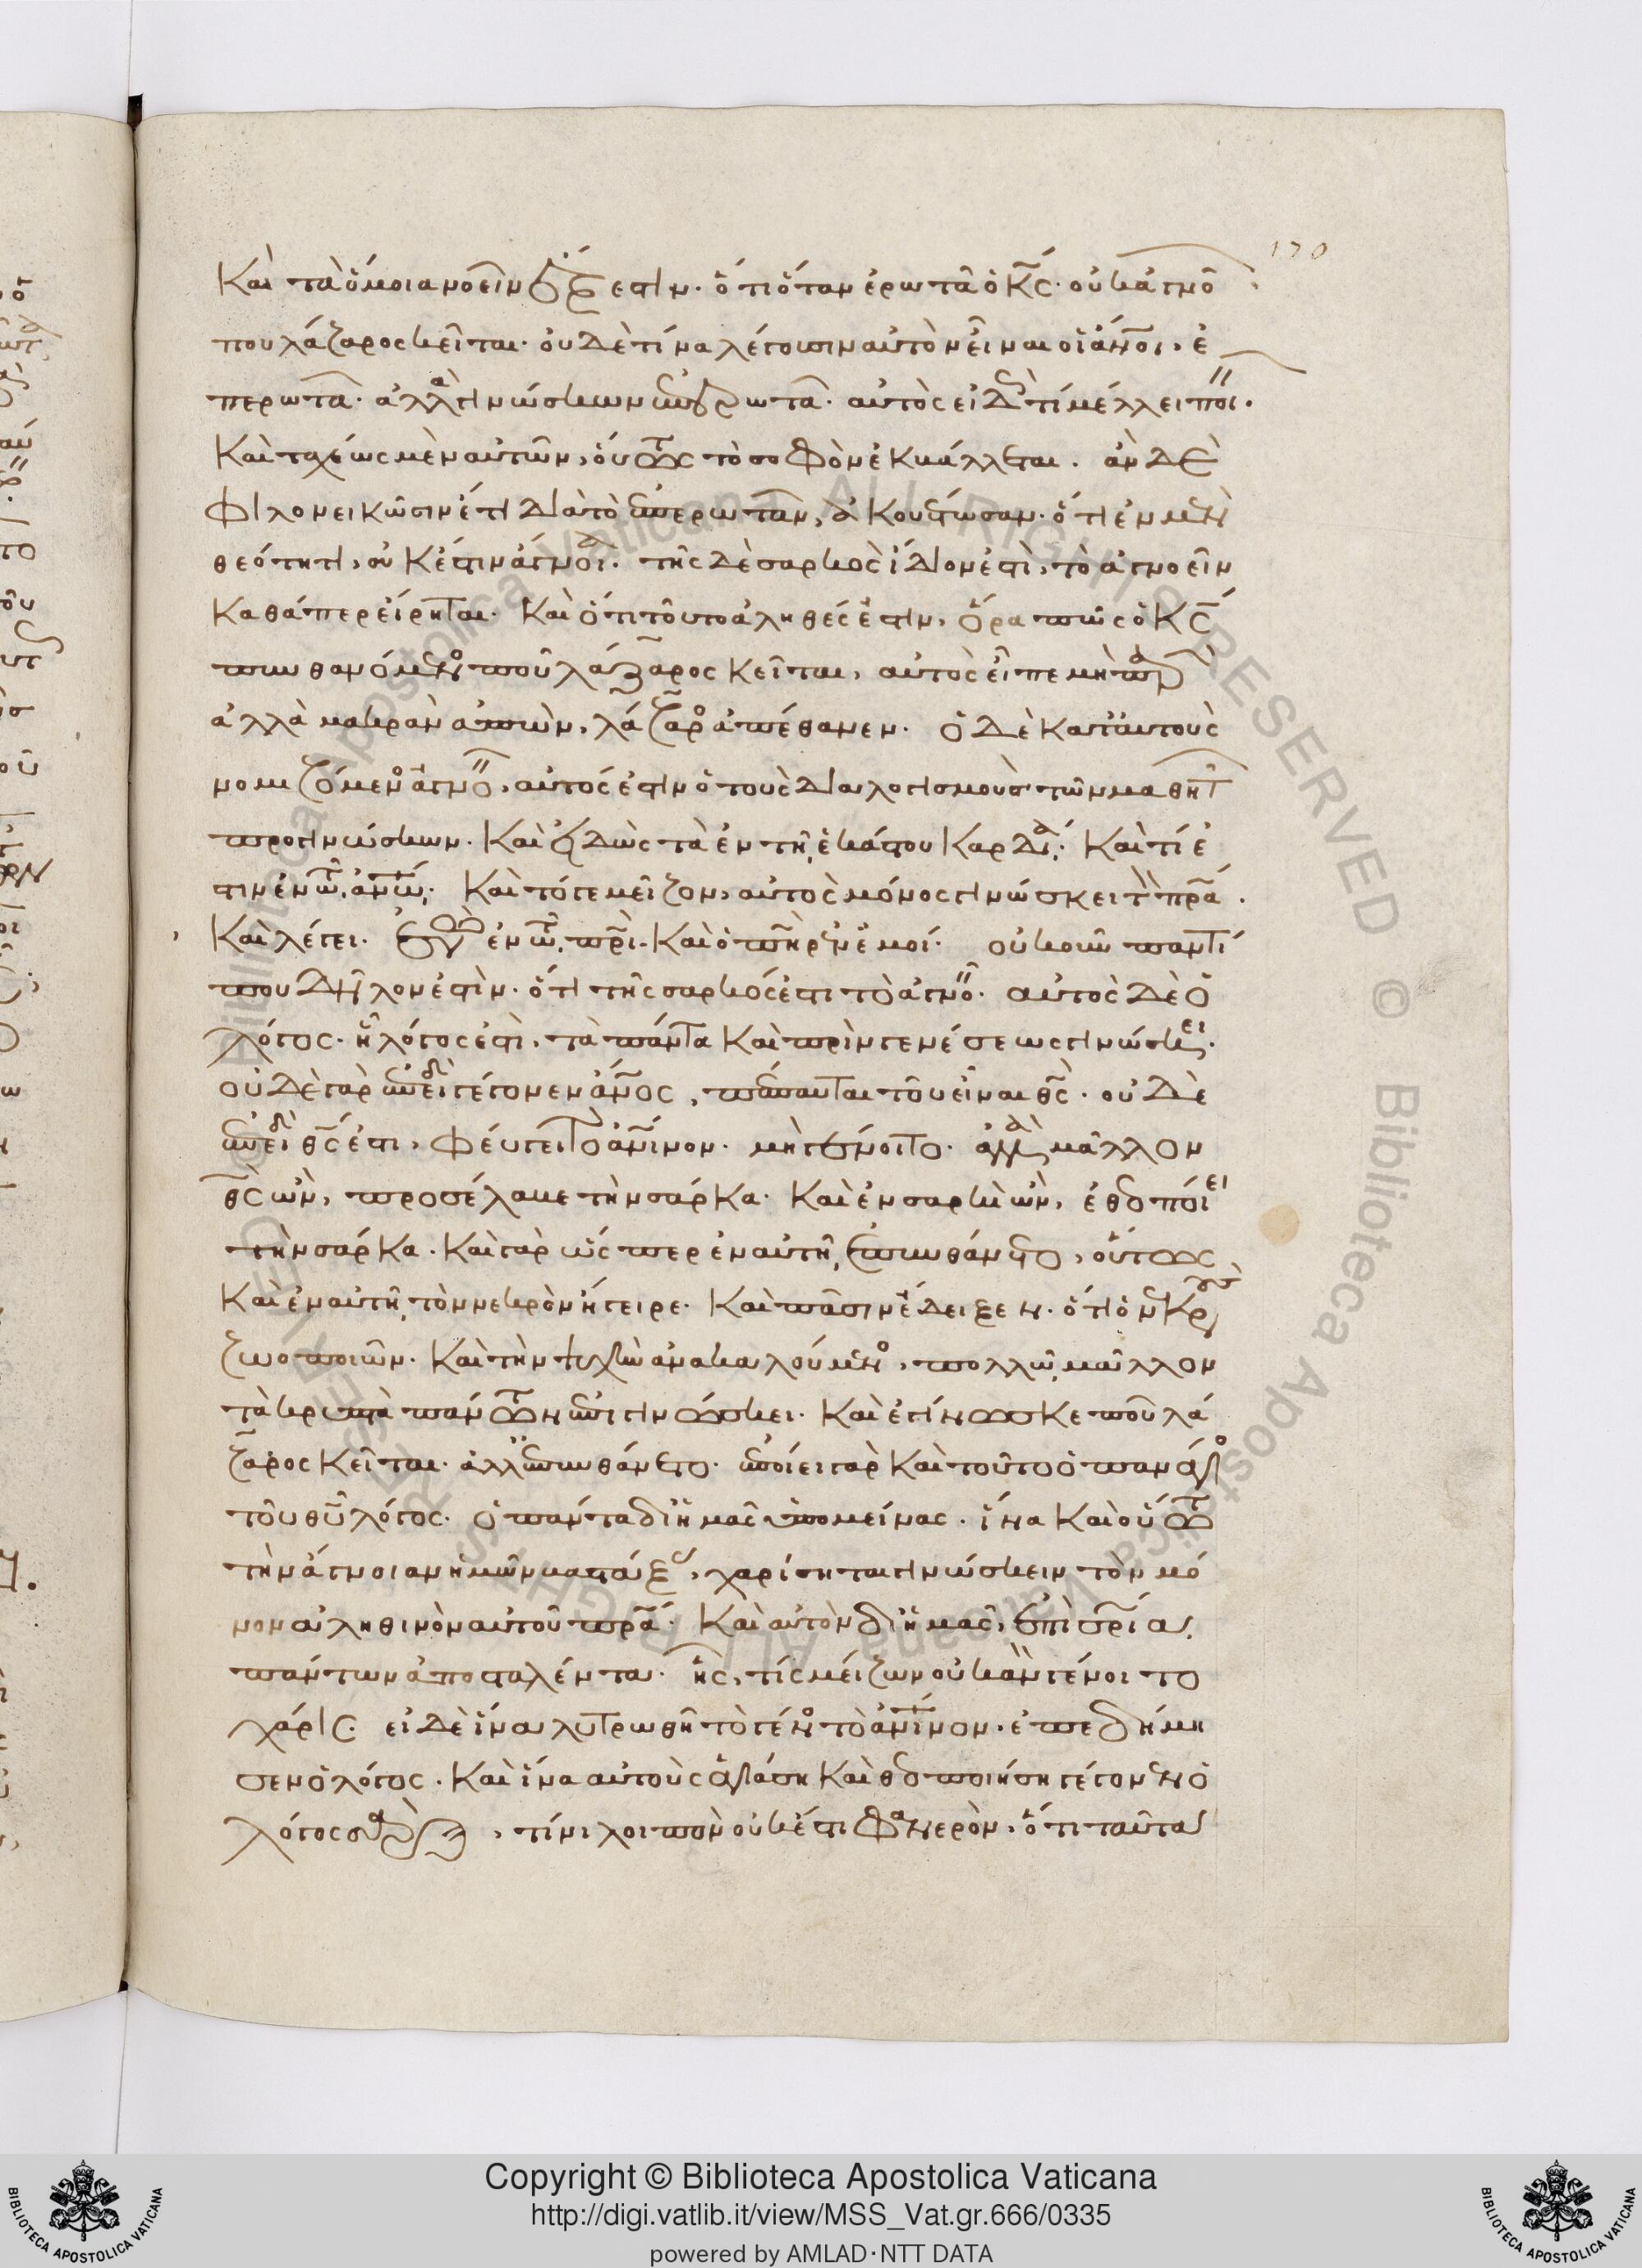 170
Καὶ τὰ ὅμοια νοεῖν ἔξεστιν. ὅτι ὅταν ἐρωτᾷ ὁ κς. οὐκ ἀγνο
ποῦ λάζαρος κεῖται. οὐδὲ τίνα λέγουσιν αὐτὸν εἶναι οἱ ἄνοι. ἐ
περωτᾷ. ἀλλὰ γινώσκων ἐπερωτᾷ. αὐτὸς εἰδὼς τί μέλλει ποι.
Καὶ ταχέως μὲν αὐτῶν, οὕτως τὸ σοφὸν ἐκβάλλεται. ἂν δὲ
φιλονεικῶσιν ἔτι διὰ τὸ ἐπερωτᾶν, ἀκουέτωσαν. ὅτι ἐν μὲν
θεότητι, οὐκ ἔστιν ἄγνοια. τῆς δὲ σαρκὸς ἴδιον ἐστὶ, τὸ ἀγνοεῖν
καθάπερ εἴρηται. Καὶ ὅτι τοῦτο ἀληθές ἐστιν, ὅρα πῶς ὁ κς
πυνθανόμενος ποῦ λάζαρος κεῖται, αὐτὸς εἶπε μὴ παρὼν
ἀλλὰ μακρὰν ἀπὼν, λάζαρος ἀπέθανεν. Ὁ δὲ κατ' αὐτοὺς
νομιζόμενος ἀγνο, αὐτός ἐστιν ὁ τοὺς διαλογισμοὺς τῶν μαθητ
προγινώσκων. Καὶ εἰδὼς τὰ ἐν τῇ ἑκάστου καρδίᾳ. Καὶ τί ἐ
στιν ἐν τῷ ἀνω. Καὶ τό γε μεῖζον, αὐτὸς μόνος γινώσκει τὸν πρα.
Καὶ λέγει. ἐγὼ ἐν τῷ πρι. καὶ ὁ πηρ ἐν ἐμοί. οὐκοῦν παντί
που δῆλον ἐστὶν. ὅτι τῆς σαρκός ἐστι τὸ ἀγνο. αὐτὸς δὲ ὁ
λόγος. ᾗ λόγος ἐστὶ, τὰ πάντα καὶ πρὶν γενέσεως γινώσκει.
οὐδὲ γὰρ ἐπειδὴ γέγονεν ἄνος, πέπαυται τοῦ εἶναι θς. οὐδὲ
ἐπειδὴ θς ἐστι, φεύγει τὸ ἀνινον. μὴ γένοιτο. ἀλλὰ μᾶλλον
θς ὢν, προσέλαβε τὴν σάρκα. Καὶ ἐν σαρκὶ ὢν, ἐθεοποίει
τὴν σάρκα. Καὶ γὰρ ὥσπερ ἐν αὐτῇ ἐπυνθάνετο, οὕτως
Καὶ ἐν αὐτῇ τὸν νεκρὸν ἤγειρε. Καὶ πᾶσιν ἔδειξεν. ὅτι ὁ νεκροὺς
ζωοποιῶν. Καὶ τὴν ψυχὴν ἀνακαλούμενος, πολλῷ μᾶλλον
τὰ κρυπτὰ πάντων ἐπιγινώσκει. Καὶ ἐγίνωσκε ποῦ λά
ζαρος κεῖται. ἀλλ' ἐπυνθάνετο. ἐποίει γὰρ καὶ τοῦτο ὁ πανάγιος
τοῦ θυ λόγος. ὁ πάντα δι' ἡμᾶς ὑπομείνας. ἵνα καὶ οὕτω
τὴν ἄγνοιαν ἡμῶν βαστάξας, χαρίσηται γινώσκειν τὸν μό
νον ἀληθινὸν αὐτοῦ πρα. Καὶ αὐτὸν δι' ἡμᾶς, ἐπὶ σρίᾳ
πάντων ἀποσταλέντα. ἧς, τίς μείζων οὐκ ἂν γένοιτο
χάρις. εἰ δὲ ἵνα λυτρωθῇ τὸ γένος τὸ ἀνινον. ἐπεδήμη
σεν ὁ λόγος. Καὶ ἵνα αὐτοὺς ἁγιάσῃ καὶ θεοποιήσῃ γέγονεν ὁ
λόγος σάρξ, τίνι λοιπὸν οὐκ ἔστι φανερὸν, ὅτι ταῦτα
Copyright © Biblioteca Apostolica Vaticana
http://digi.vatlib.it/view/MSS_Vat.gr.666/0335
powered by AMLAD·NTT DATA